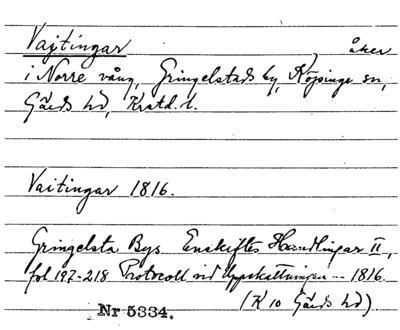 Vajtingar, åker
i Norre vång, Gringelstads by, Köpinge sn,
Gärds hd, Krstd. l.
Vaitingar 1816.
Gringelsta Bys Enskiftes Handlingar II,
fol 197-218 Protocoll vid Uppskattningen --- 1816.
(K 10 Gärds hd)
Nr 5334.